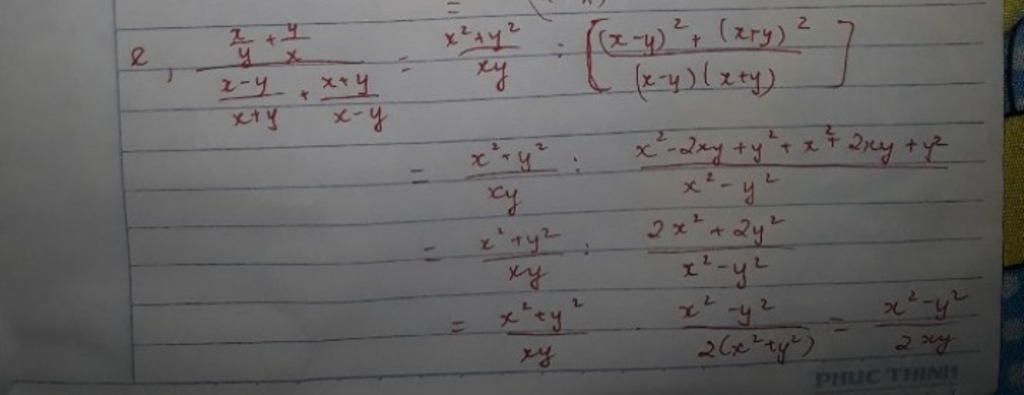 e, (x/y + y/x) / ((x-y)/(x+y) + (x+y)/(x-y)) = (x²+y²)/(xy) : [((x-y)² + (x+y)²)/((x-y)(x+y))]
= (x²+y²)/(xy) : (x²-2xy+y²+x²+2xy+y²)/(x²-y²)
= (x²+y²)/(xy) : (2x²+2y²)/(x²-y²)
= (x²+y²)/(xy) . (x²-y²)/(2(x²+y²)) = (x²-y²)/(2xy)
PHUC THINH